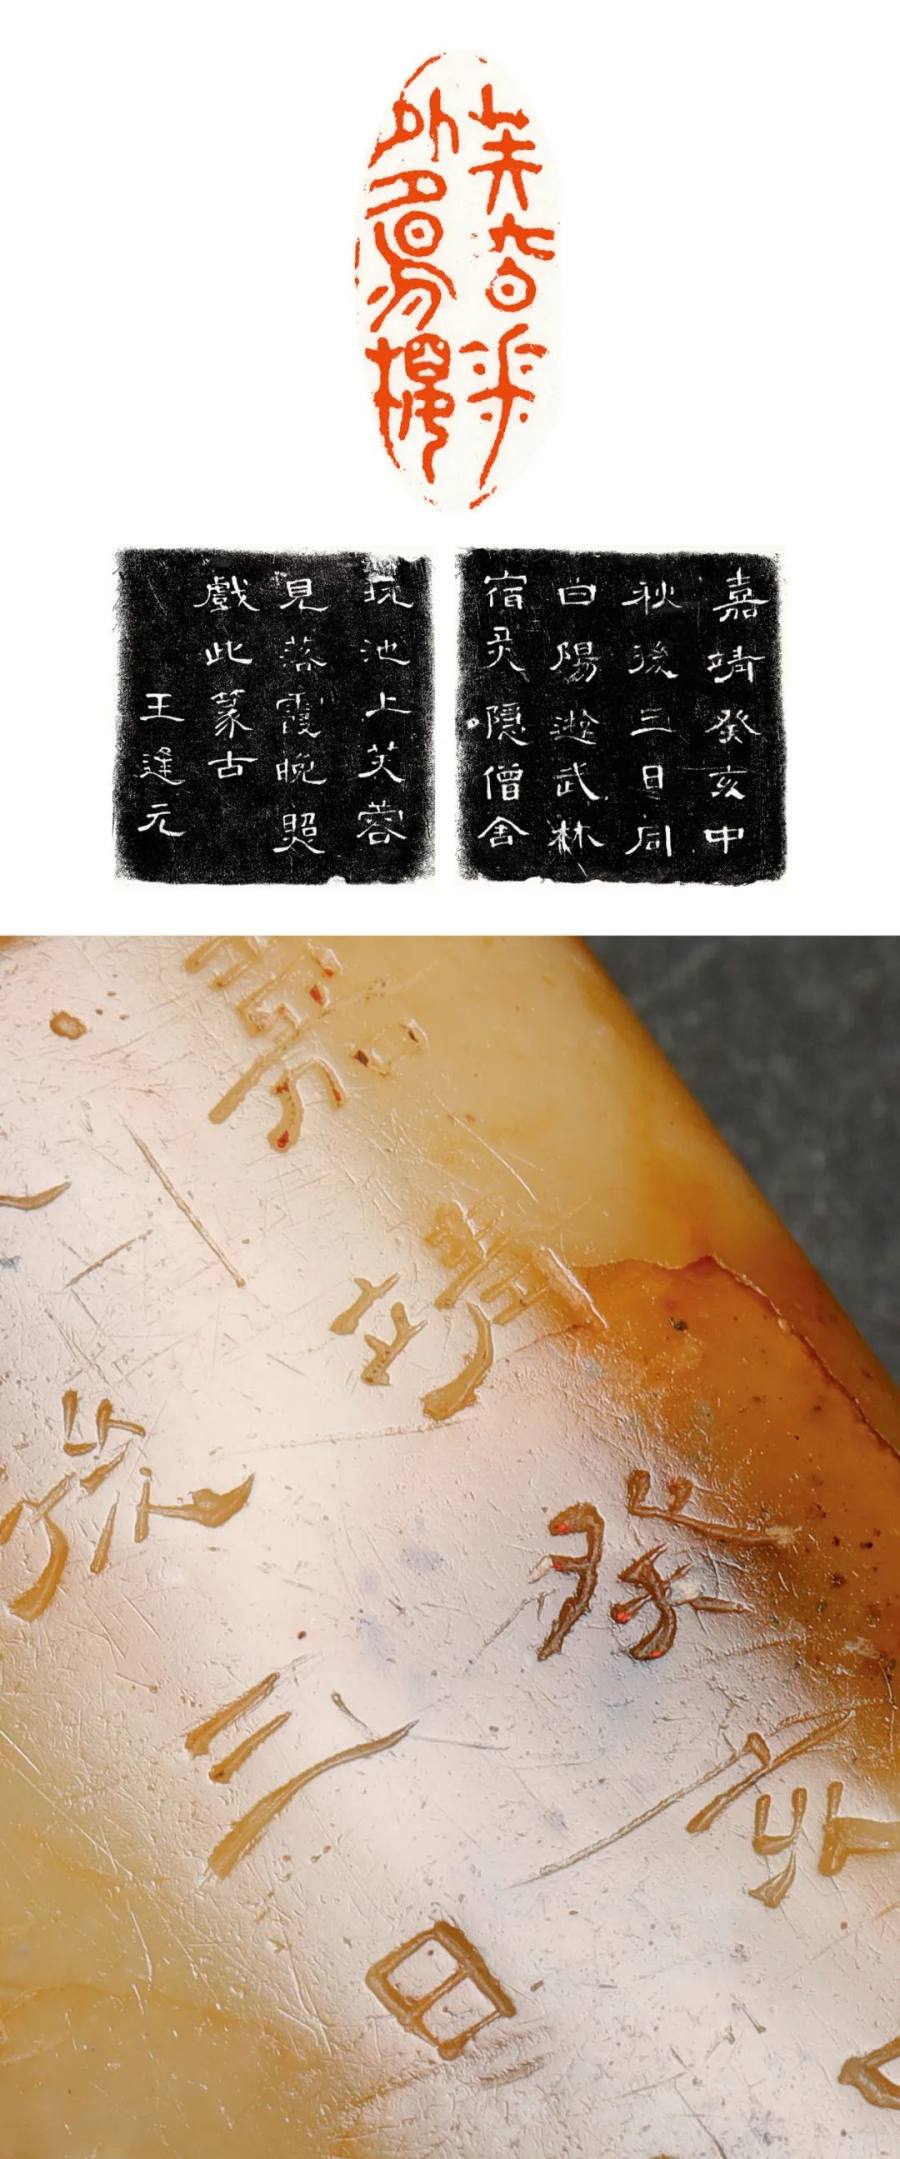 芙容
外夕昜樓
嘉靖癸亥中
秋後三日同
白陽遊武林
宿灵隱僧舍
玩池上芙蓉
見落霞晚照
戲此篆古
王逢元
嘉靖癸亥
後三日